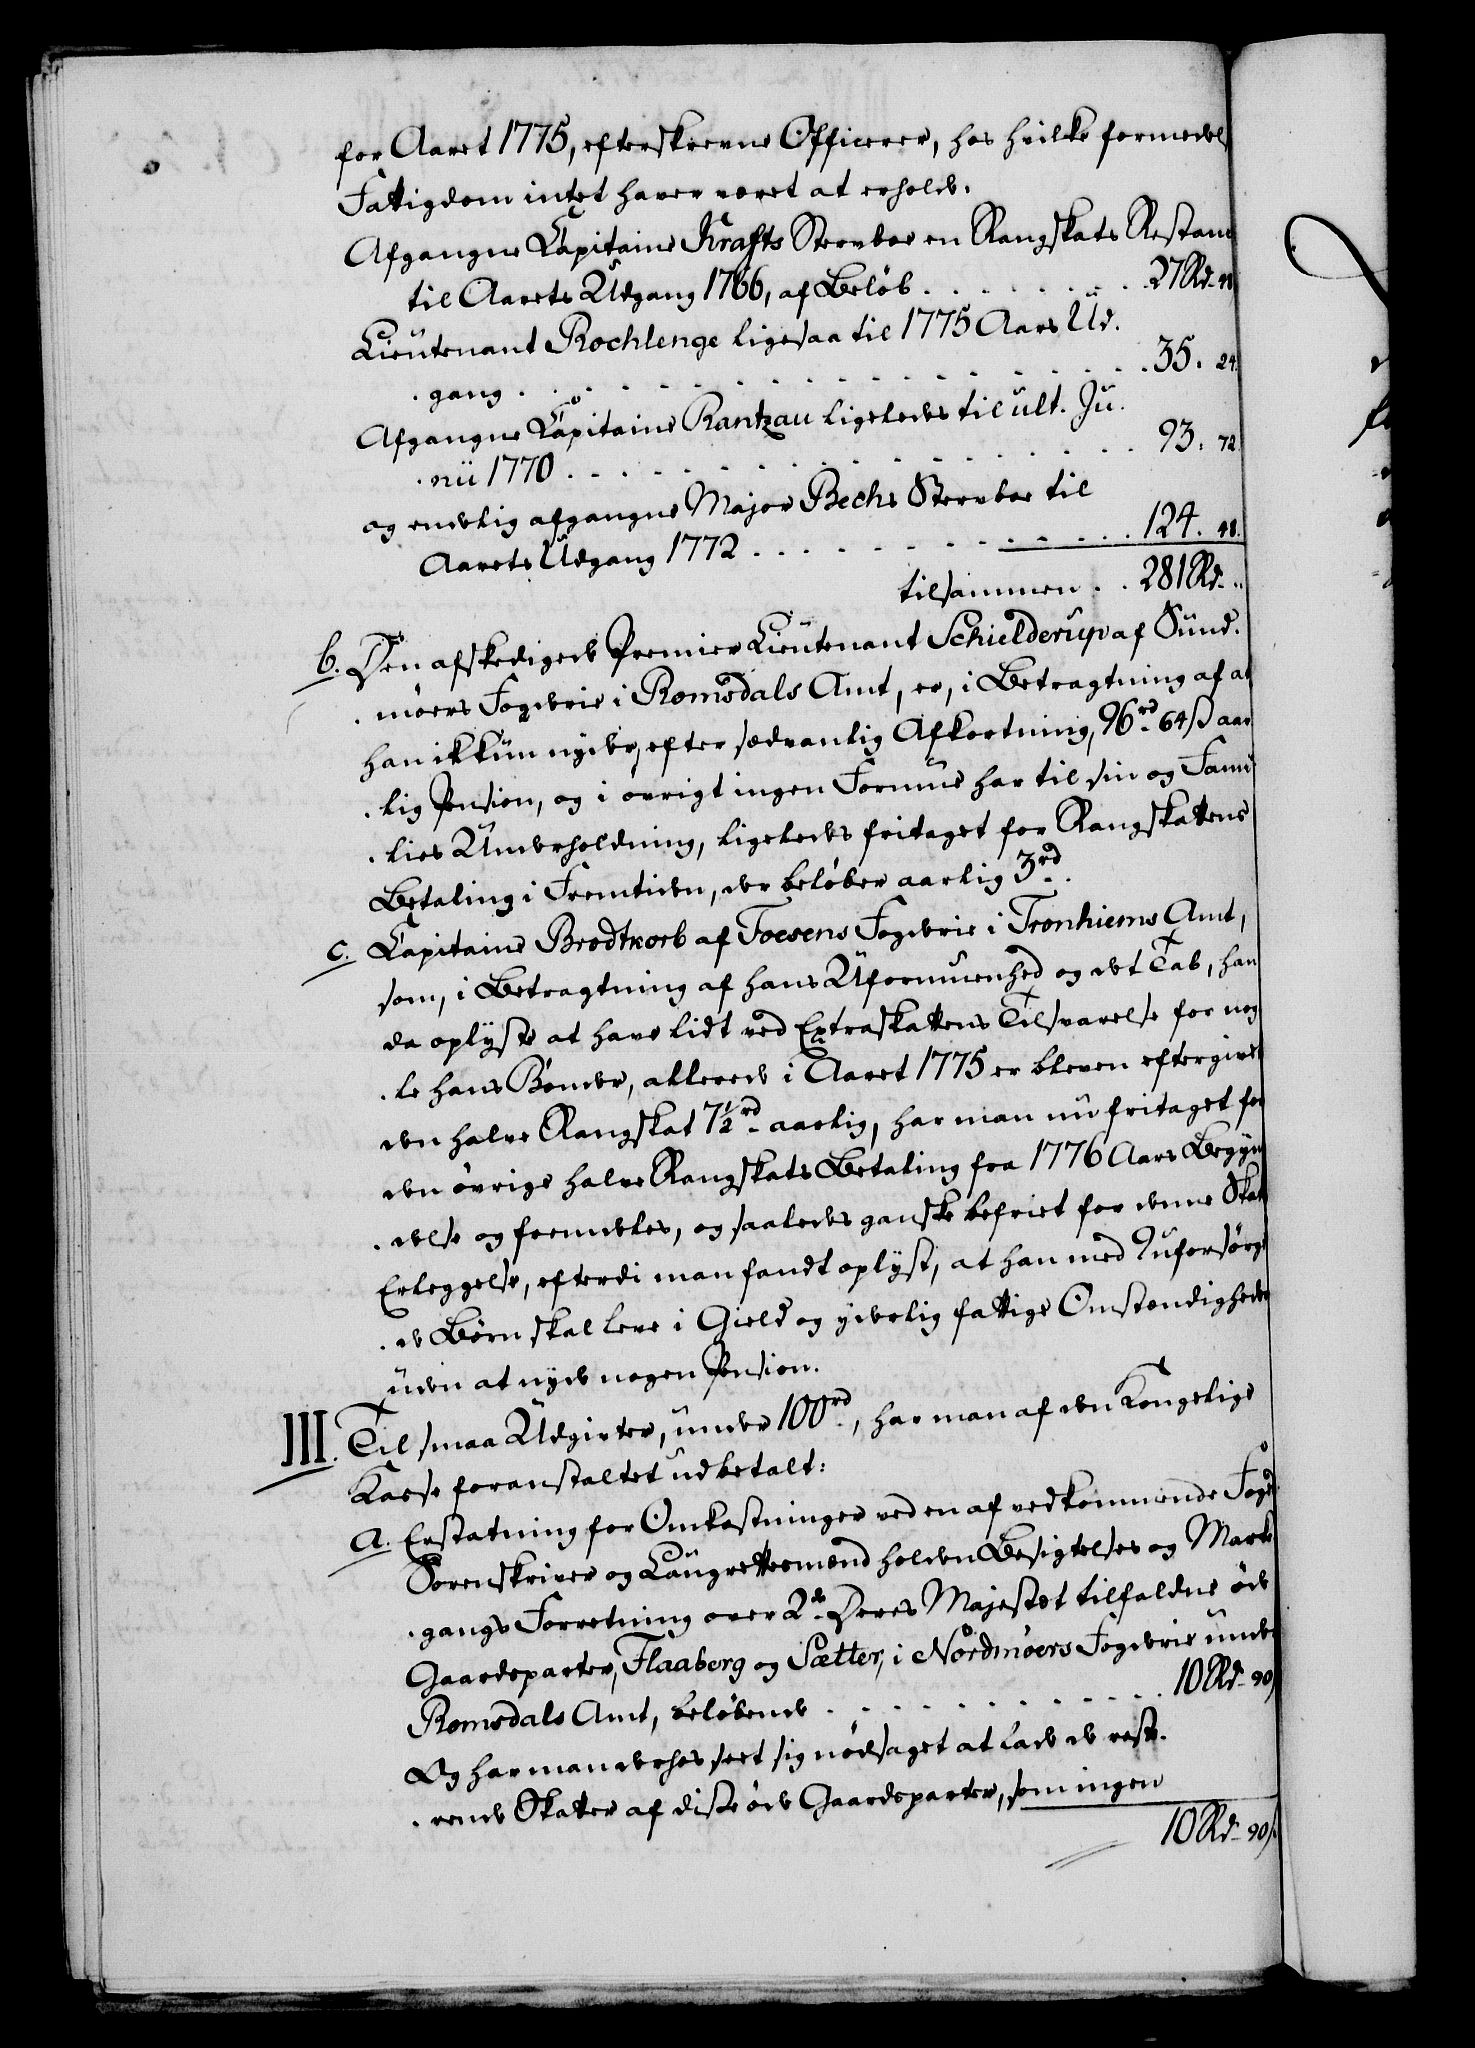 for Aaret 1775, efterskrevne Officerer, hos hvilke formedelst
Fattigdom intet haver været at erholde.
Afgangne Capitaine Krafts Stervboe en Rangskats Restance
til Aarets Udgang 1766, af Beløb . . . . . . . . 27 Rd. 48
Lieutenant Rochlenge ligesaa til 1775 Aars Ud-
-gang . . . . . . . . . . . . . . . . 35. 24.
Afgangne Capitaine Rantzau ligeledes til ult. Ju-
-nii 1770 . . . . . . . . . . . . . . . . 93. 72
og endelig afgangne Major Bechs Stervboe til
Aarets Udgang 1772 . . . . . . . . . . . . 124. 48.
tilsammen . . 281 Rd. "
b. Den afskedigede Premier Lieutenant Schielderup af Sund-
-møers Fogderie i Romsdals Amt, er, i Betragtning af at
han ikkun nyder, efter sædvanlig Afkortning, 96 rd 64 ß aar-
-lig Pension, og i øvrigt ingen Formue har til sin og Fami-
-lies Underholdning, ligeledes fritaget for Rangskattens
Betaling i Fremtiden, der beløber aarlig 3 rd.
c. Capitaine Brodtkorb af Foesens Fogderie i Tronhiems Amt,
som, i Betragtning af hans Uformuenhed og det Tab, han
da oplyste at have lidt ved Extraskattens Tilsvarelse for nog-
-le hans Bønder, allerede i Aaret 1775 er bleven eftergivet
den halve Rangskat 7½ rd aarlig, har man nu fritaget for
den øvrige halve Rangskats Betaling fra 1776 Aars Begyn-
-delse og fremdeles, og saaledes ganske befriet for denne Skats
Erleggelse, efterdi man fandt oplyst, at han med 9 uforsørge-
-de Børn skal leve i Gield og ydelig fattige Omstændigheder
uden at nyde nogen Pension.
III. Til smaa Udgivter, under 100 rd, har man af den Kongelige
Kasse foranstaltet udbetalt:
a. Erstatning for Omkostninger ved en af vedkommende Foged
Sorenskriver og Laugrettesmænd holden Besigtelses og Marke-
-gangs Forretning over 2de Deres Majestet tilfaldne øde
Gaardsparter, Flaaberg og Sætter, i Nordmøers Fogderie under
Romsdals Amt, beløbende . . . . . . . . . . . . 10 Rd. 90 ß
Og har man derhos seet sig nødsaget at lade de reste-
-rende Skatter af disse øde Gaardsparter, som ingen
10 Rd. 90 ß.